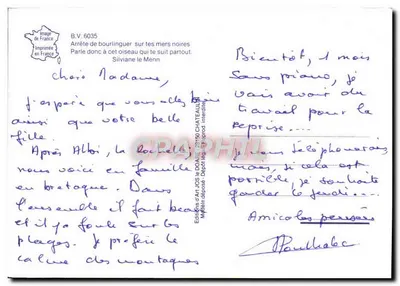 Image
de France
Imprimée
en France
B.V. 6035
Arrête de bourlinguer sur les mers noires
Parle donc à cet oiseau qui te suit partout.
Silviane le Menn
Chère Madame,
J'espère que vous allez bien
ainsi que votre belle
fille.
Après Albi, la
nous voici en famille
en bretagne. Dans
l'ensemble il fait beau
et il y a foule sur les
plages. Je préfère le
calme des montagnes
Bientôt, 1 mois
sans piano, je
vais avoir du
travail pour la
reprise....
je vous téléphonerais
mais, si cela est
possible, je souhaite
garder le jeudi...
Amicales pensées